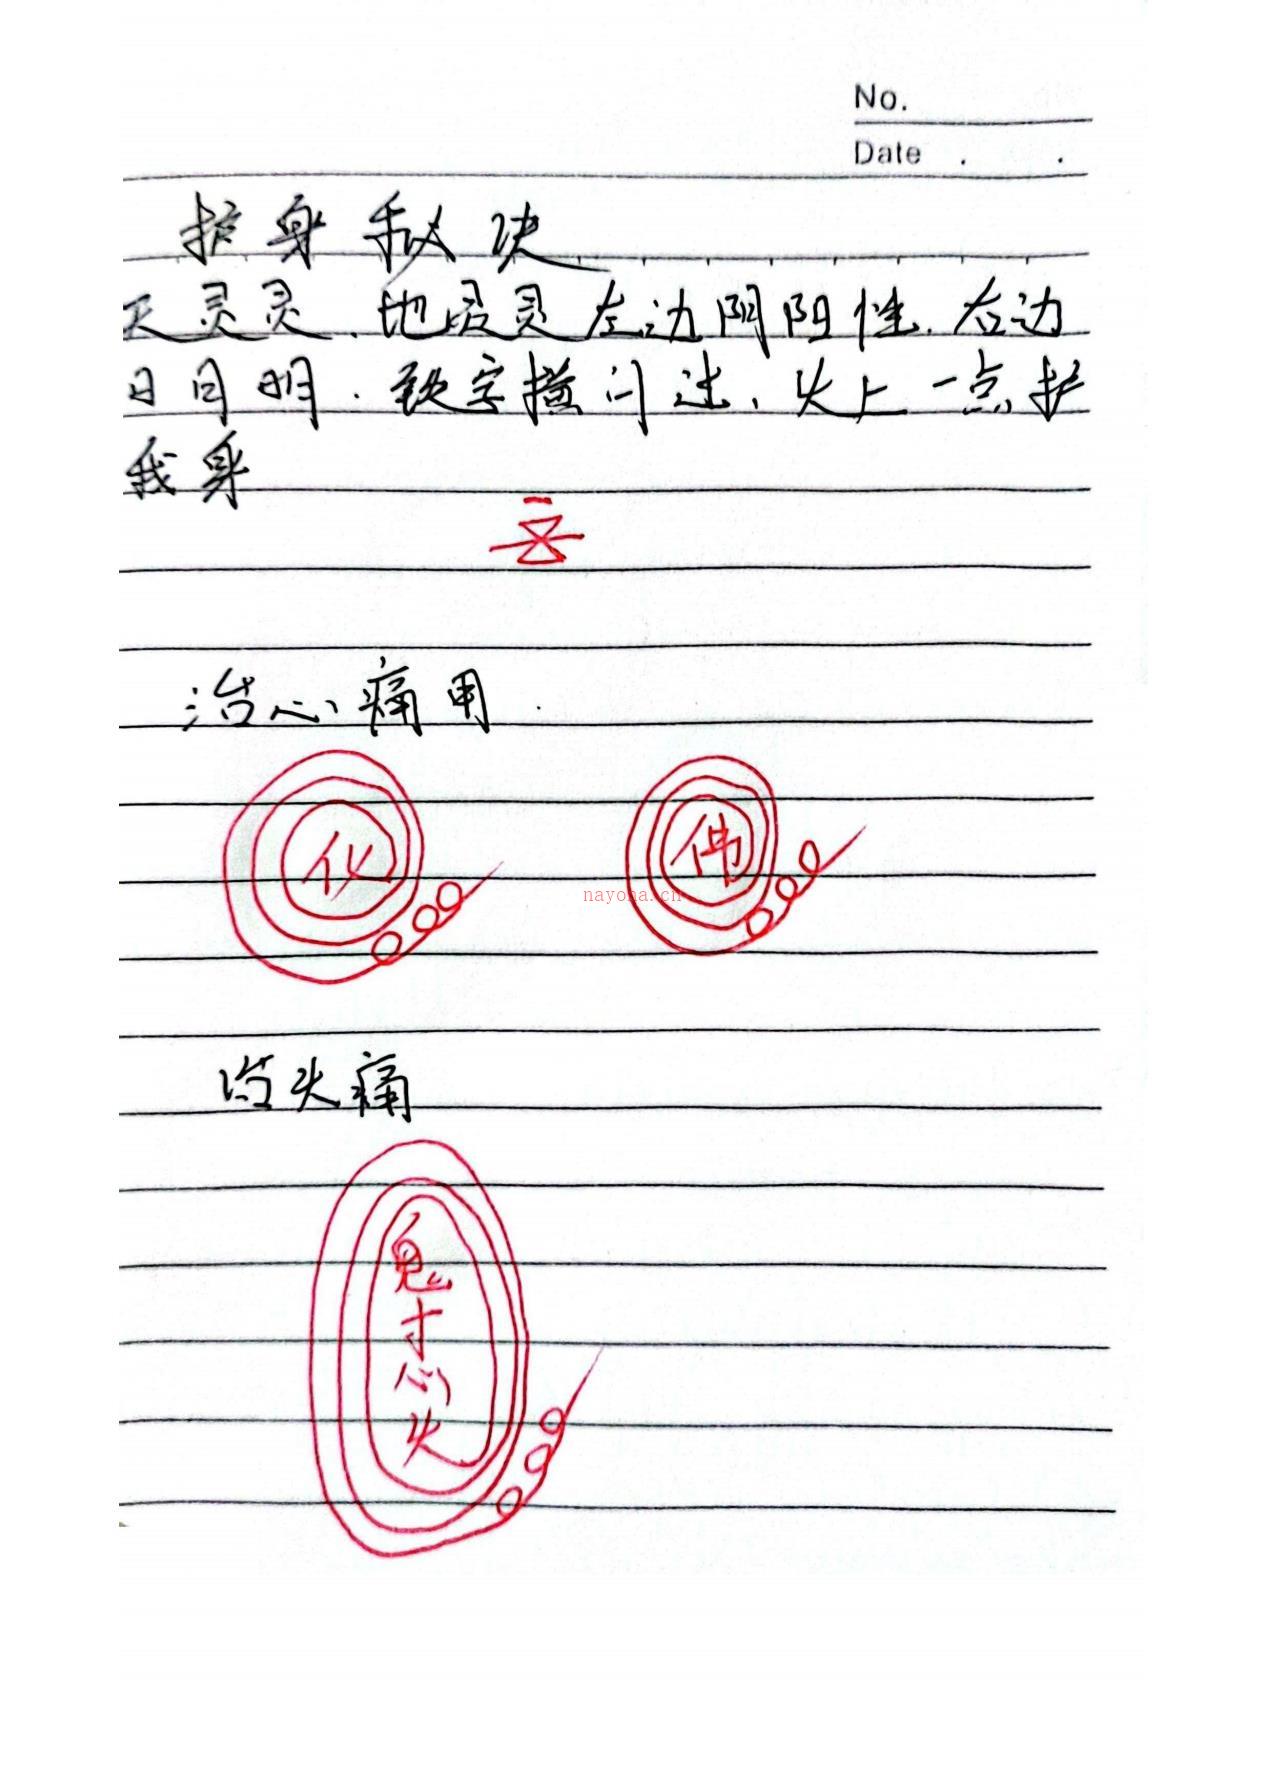 No.
Date . .
护身秘决
天灵灵、地灵灵左边阴阳性、右边
日月明、铁字横门过、头上一点护
我身
治心痛用
化
佛
nayona.cn
治头痛
鬼
寸
心
头